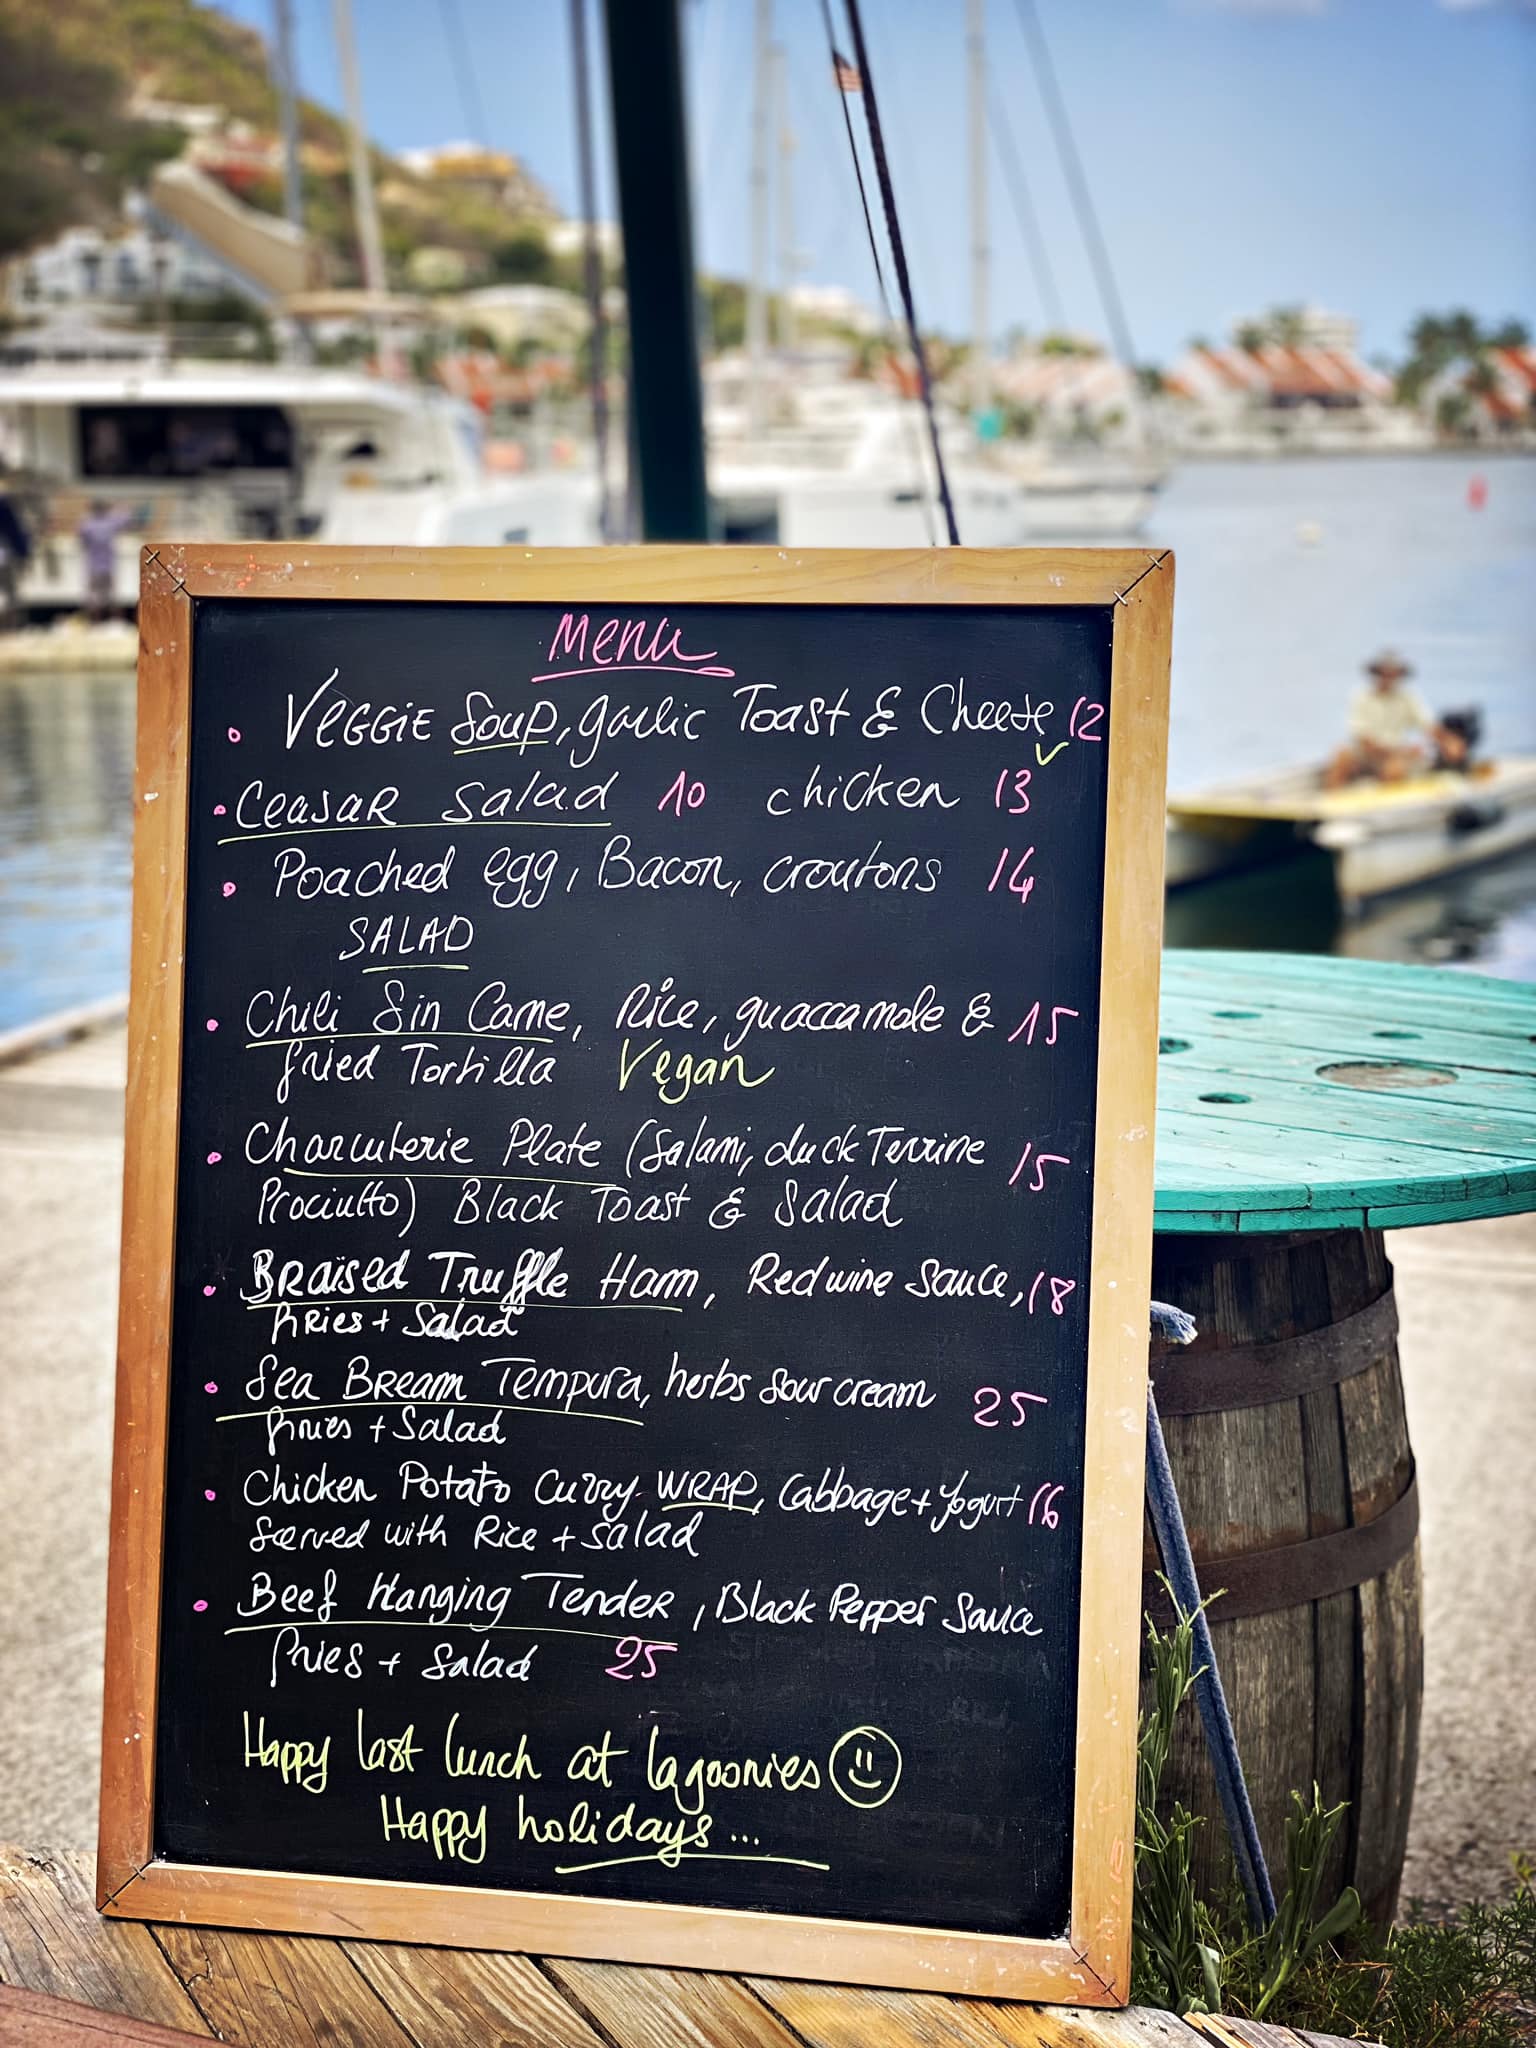 Menu
• VEGGIE Soup, garlic Toast & Cheese 12
v
• CEASAR Salad 10 chicken 13
• Poached egg, Bacon, croutons 14
SALAD
• Chili Sin Carne, Rice, guaccamole & 15
fried Tortilla Vegan
• Charcuterie Plate (Salami, duck Terrine 15
Prociutto) Black Toast & Salad
• BRaïsed Truffle Ham, Red wine Sauce, 18
fRies + Salad
• Sea BReam Tempura, herbs Sour cream 25
fries + Salad
• Chicken Potato Curry WRAP, Cabbage + Yogurt 16
Served with Rice + Salad
• Beef Hanging TendeR, Black Pepper Sauce
fries + Salad 25
Happy last lunch at lagoonies
Happy holidays...